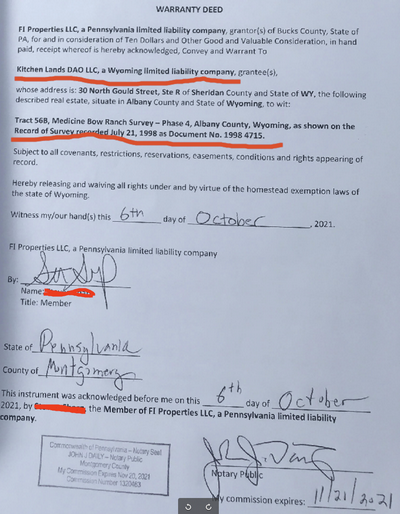 WARRANTY DEED
FI Properties LLC, a Pennsylvania limited liability company, grantor(s) of Bucks County, State of
PA, for and in consideration of Ten Dollars and Other Good and Valuable Consideration, in hand
paid, receipt whereof is hereby acknowledged, Convey and Warrant To
Kitchen Lands DAO LLC, a Wyoming limited liability company, grantee(s),
whose address is: 30 North Gould Street, Ste R of Sheridan County and State of WY, the following
described real estate, situate in Albany County and State of Wyoming, to wit:
Tract 56B, Medicine Bow Ranch Survey – Phase 4, Albany County, Wyoming, as shown on the
Record of Survey recorded July 21, 1998 as Document No. 1998 4715.
Subject to all covenants, restrictions, reservations, easements, conditions and rights appearing of
record.
Hereby releasing and waiving all rights under and by virtue of the homestead exemption laws of
the state of Wyoming.
Witness my/our hand(s) this 6th day of October, 2021.
FI Properties LLC, a Pennsylvania limited liability company
By:
Name:
Title: Member
State of Pennsylvania
County of Montgomery
This instrument was acknowledged before me on this 6th day of October
2021, by the Member of FI Properties LLC, a Pennsylvania limited liability
company.
Commonwealth of Pennsylvania - Notary Seal
JOHN J DAILY - Notary Public
Montgomery County
My Commission Expires Nov 20, 2021
Commission Number
Notary Public
My commission expires: 11/21/2021